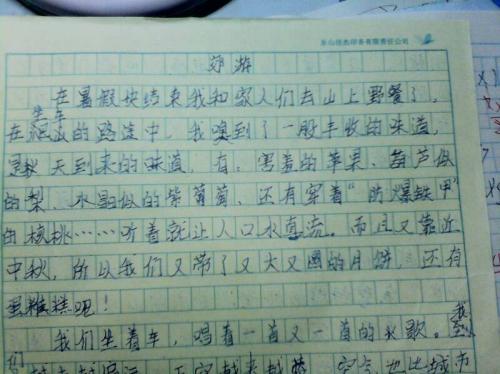 乐山佳杰印务有限责任公司
郊游
在暑假快结束我和家人们去山上野餐了。
坐车
在爬山的路途中，我嗅到了一股丰收的味道，
是秋天到来的味道，有：害羞的苹果、葫芦似
的梨、水晶似的紫葡萄，还有穿着“防爆铁甲”
的核桃……听着就让人口水直流。而且又靠近
中秋，所以我们又带了又大又圆的月饼，还有
蛋糕吧！
我们坐着车，唱着一首又一首的火歌。我
们 越来越 空气也比城市